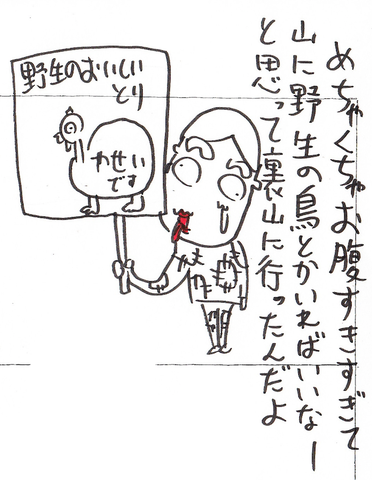 めちゃくちゃお腹すきすぎて
山に野生の鳥とかいればいいなー
と思って裏山に行ったんだよ
野生のおいしい
とり
やせい
です